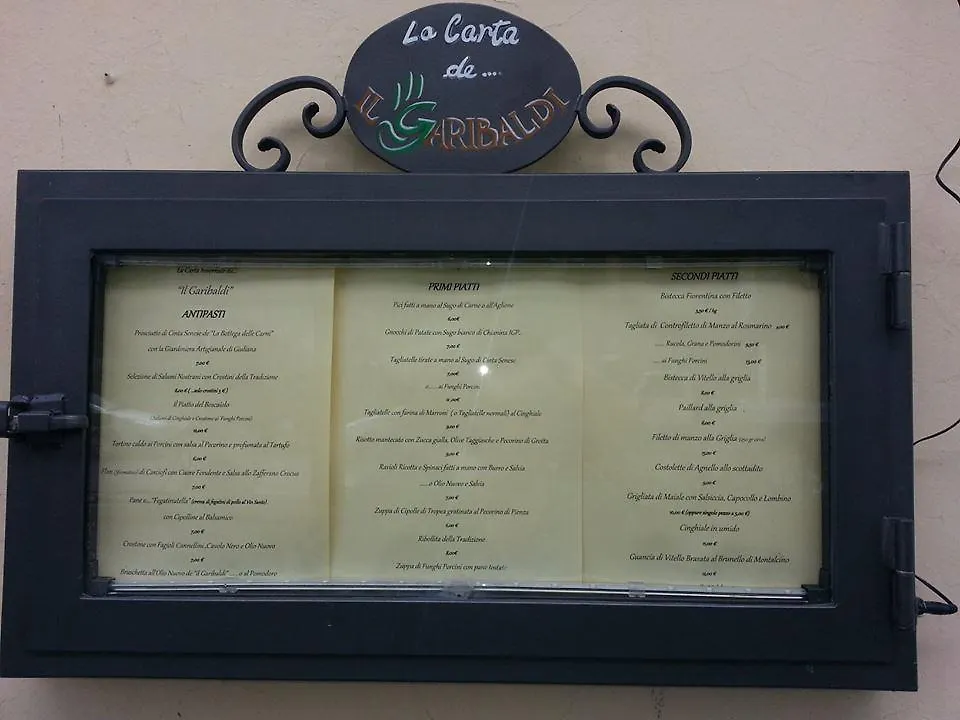 La Carta
de....
IL GARIBALDI
La Carta Invernale de...
"Il Garibaldi"
ANTIPASTI
Prosciutto di Cinta Senese de "La Bottega delle Carni"
con la Giardiniera Artigianale di Giuliana
7,00 €
Selezione di Salumi Nostrani con Crostini della Tradizione
8,00 € (...solo crostini 5 €)
Il Piatto del Boscaiolo
(Salumi di Cinghiale e Crostone ai Funghi Porcini)
Tortino caldo ai Porcini con salsa al Pecorino e profumata al Tartufo
6,00 €
Flan (sformatino) di Carciofi con Cuore Fondente e Salsa allo Zafferano Crocus
7,00 €
Pane e..."Fegatinatella" (crema di fegatini di pollo al Vin Santo)
con Cipolline al Balsamico
7,00 €
Crostone con Fagioli Cannellini, Cavolo Nero e Olio Nuovo
7,00 €
Bruschetta all'Olio Nuovo de "Il Garibaldi"......o al Pomodoro
PRIMI PIATTI
Pici fatti a mano al Sugo di Carne o all'Aglione
6,00€
Gnocchi di Patate con Sugo bianco di Chianina IGP..
7,00 €
Tagliatelle tirate a mano al Sugo di Cinta Senese
7,00€
o......ai Funghi Porcini
Tagliatelle con farina di Marroni (o Tagliatelle normali) al Cinghiale
9,00 €
Risotto mantecato con Zucca gialla, Olive Taggiasche e Pecorino di Grotta
9,00 €
Ravioli Ricotta e Spinaci fatti a mano con Burro e Salvia
.....o Olio Nuovo e Salvia
7,00 €
Zuppa di Cipolle di Tropea gratinata al Pecorino di Pienza
6,00 €
Ribollita della Tradizione
8,00€
Zuppa di Funghi Porcini con pane tostato
SECONDI PIATTI
Bistecca Fiorentina con Filetto
3,50 € / hg
Tagliata di Controfiletto di Manzo al Rosmarino
..... Rucola, Grana e Pomodorini 9,50 €
.....ai Funghi Porcini 13,00 €
Bistecca di Vitello alla griglia
8,00 €
Paillard alla griglia
6,00 €
Filetto di manzo alla Griglia (250 gr circa)
15,00 €
Costolette di Agnello allo scottadito
9,00 €
Grigliata di Maiale con Salsiccia, Capocollo e Lombino
10,00 € (oppure singolo pezzo a 5,00 €)
Cinghiale in umido
11,00 €
Guancia di Vitello Brasata al Brunello di Montalcino
12,00 €